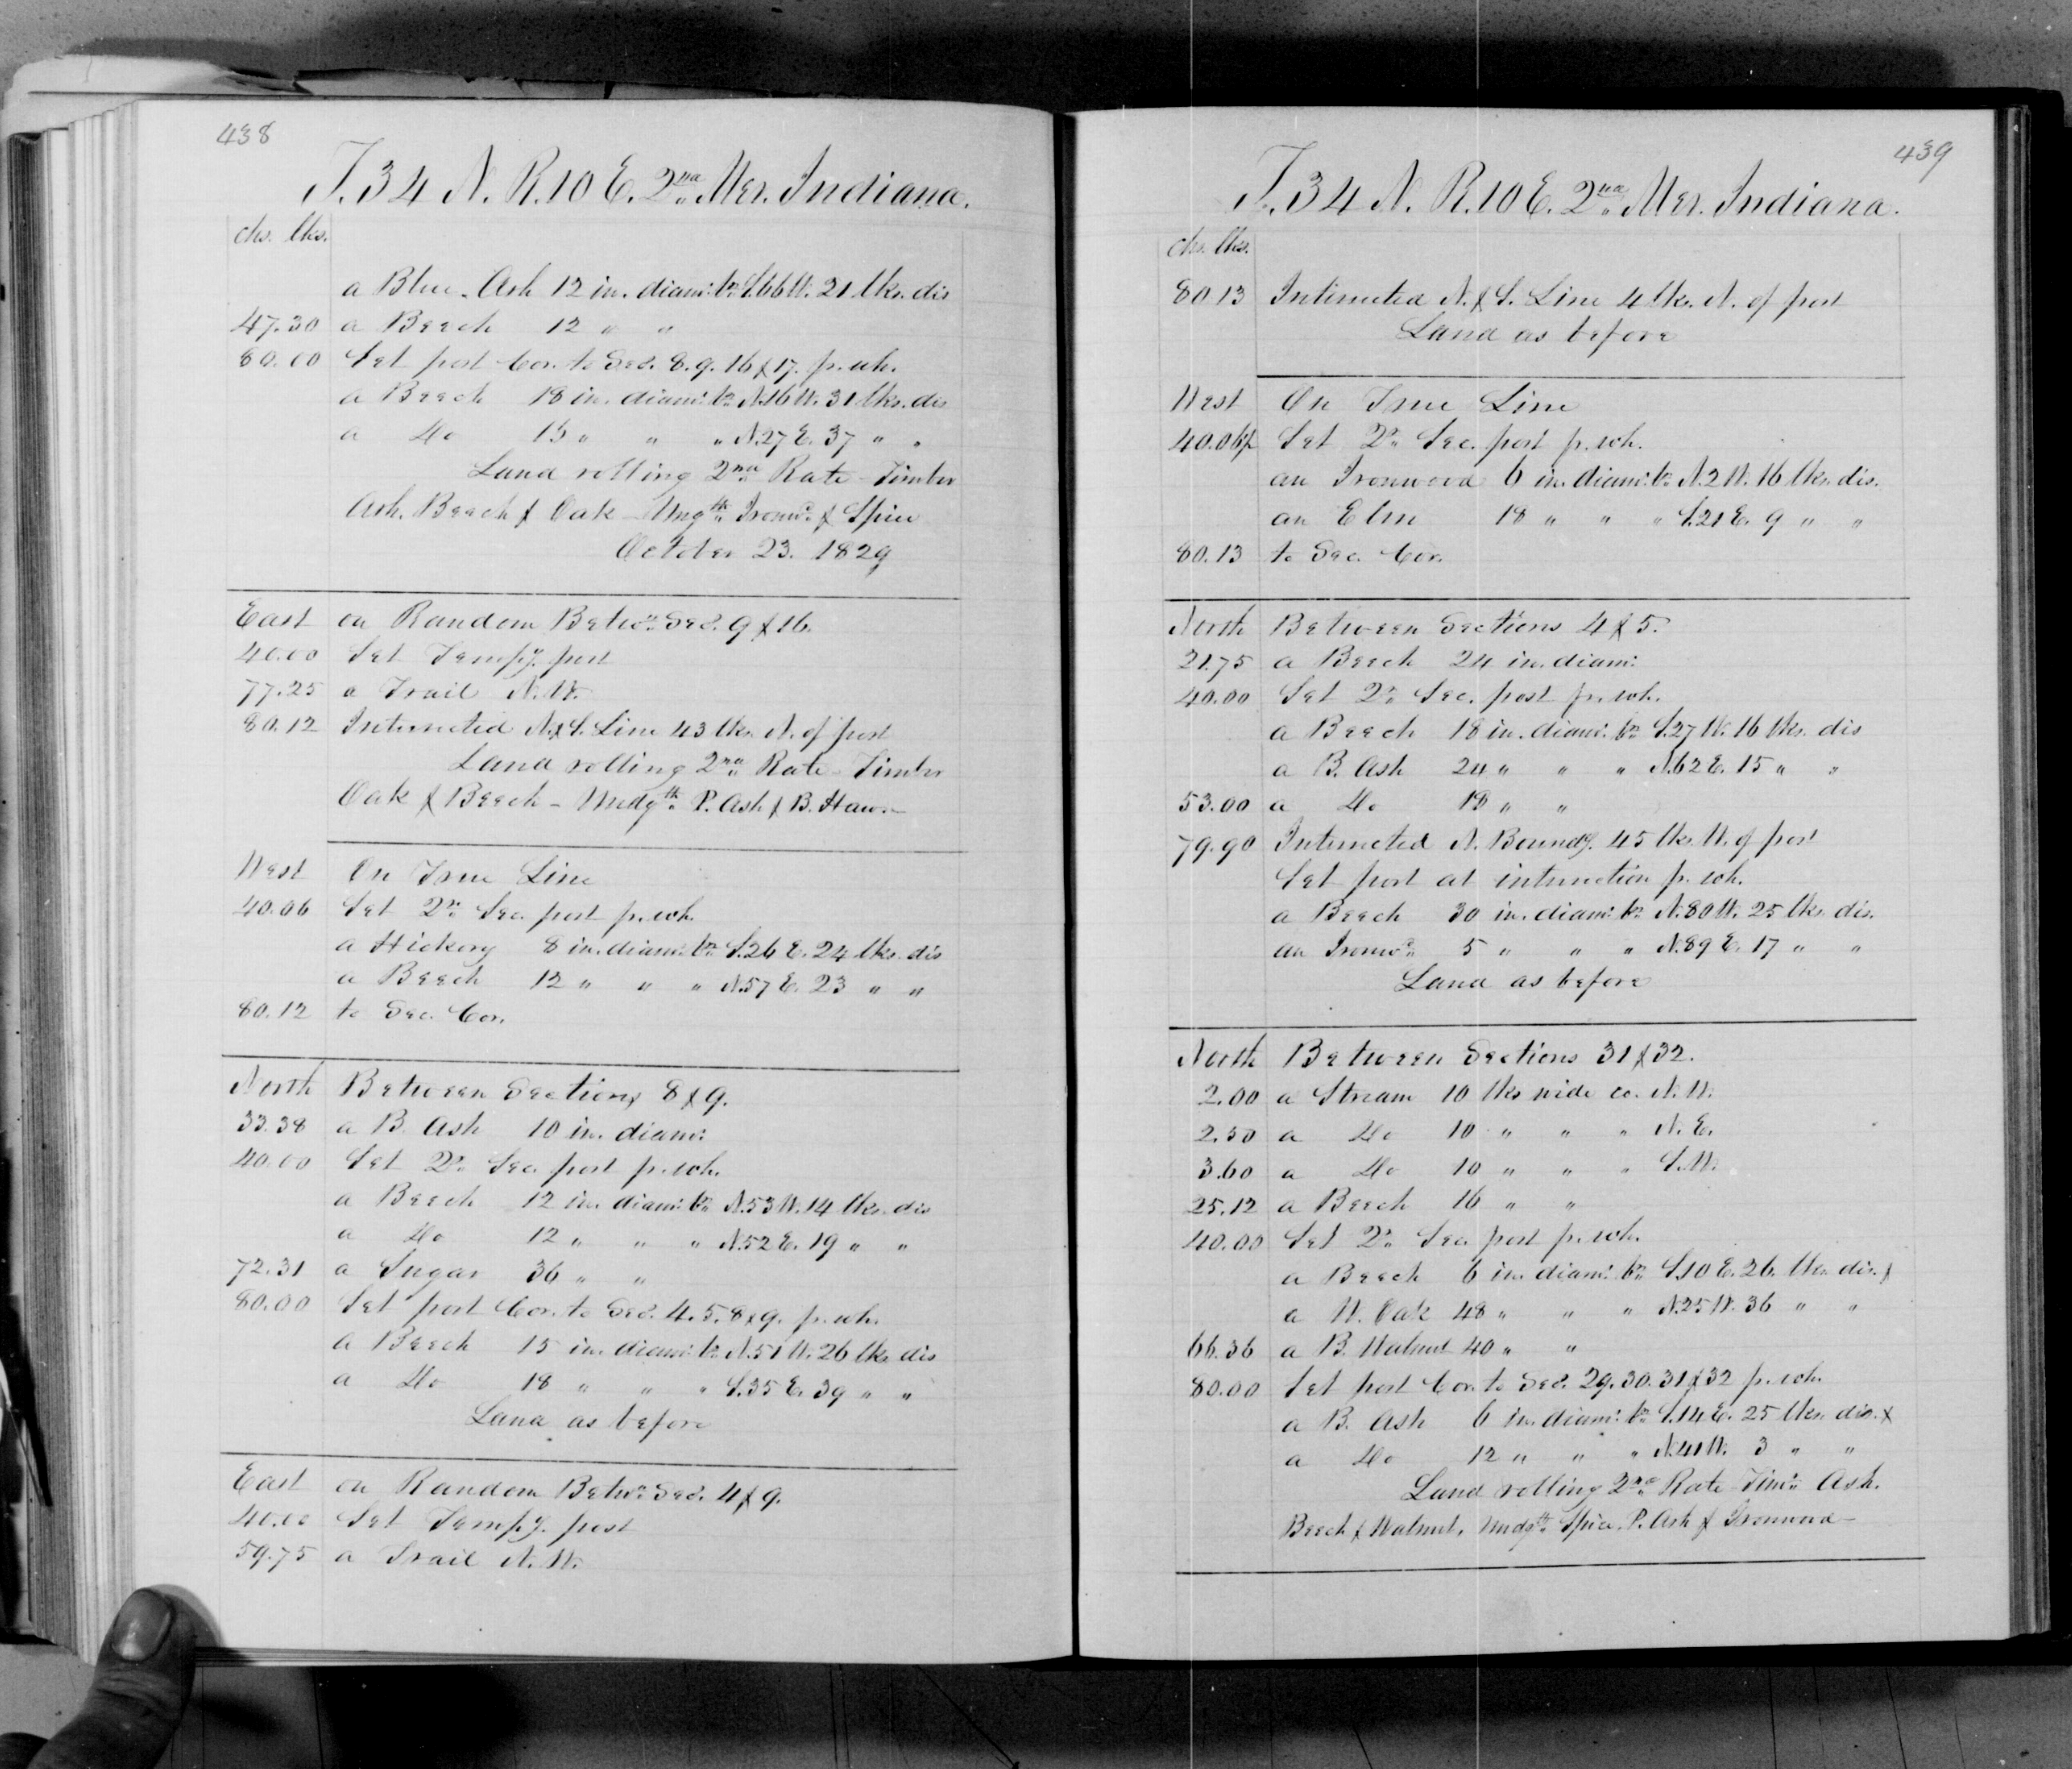 438
T. 34 N. R. 10 E. 2nd Mer. Indiana.
chs. lks.
a Blue Ash 12 in. diam: br. S.66 W. 21 lks. dis
47.30 a Beech 12 " "
80.00 Set post Cor. to Secs. 8. 9. 16 & 17. p. wh.
a Beech 18 in. diam: br. N.16 W. 31 lks. dis
a Do 15 " " " N.27 E. 37 " "
Land rolling 2nd Rate - Timber
Ash. Beech & Oak - Ungth Ironwd & Spice
October 23. 1829
East on Random Betwn. Secs. 9 & 16.
40.00 Set Tempy. post
77.25 a Trail N. W.
80.12 Intersected N. & S. Line 43 lks. N. of post
Land rolling 2nd Rate - Timber
Oak & Beech - Undgth P. Ash & B. Haw. -
West On True Line
40.06 Set Qr. Sec. post p. wh.
a Hickory 8 in. diam: br. S.26 E. 24 lks. dis
a Beech 12 " " " N.57 E. 23 " "
80.12 to Sec. Cor.
North Between Sections 8 & 9.
33.38 a B. Ash 10 in. diam:
40.00 Set Qr. Sec. post p. wh.
a Beech 12 in. diam: br. N.53 W. 14 lks. dis
a Do 12 " " " N.52 E. 19 " "
72.31 a Sugar 36 " "
80.00 Set post Cor. to Secs. 4. 5. 8 & 9. p. wh.
a Beech 15 in. diam: br. N.51 W. 26 lks. dis
a Do 18 " " " S.35 E. 39 " "
Land as before
East on Random Betwn. Secs. 4 & 9.
40.00 Set Tempy. post
59.75 a Trail N. W.
439
T. 34 N. R. 10 E. 2nd Mer. Indiana.
chs. lks.
80.13 Intersected N. & S. Line 4 lks. N. of post
Land as before
West On True Line
40.06½ Set Qr. Sec. post p. wh.
an Ironwood 6 in. diam: br. N.2 W. 16 lks. dis.
an Elm 18 " " " S.21 E. 9 " "
80.13 to Sec. Cor.
North Between Sections 4 & 5.
21.75 a Beech 24 in. diam:
40.00 Set Qr. Sec. post p. wh.
a Beech 18 in. diam: br. S.27 W. 16 lks. dis
a B. Ash 24 " " " N.62 E. 15 " "
53.00 a Do 18 " "
79.90 Intersected N. Boundy. 45 lks. W. of post
Set post at intersection p. wh.
a Beech 30 in. diam: br. N.80 W. 25 lks. dis.
an Ironwd 5 " " " N.89 E. 17 " "
Land as before
North Between Sections 31 & 32.
2.00 a Stream 10 lks wide co. N. W.
2.50 a Do 10 " " " N. E.
3.60 a Do 10 " " " S. W.
25.12 a Beech 16 " "
40.00 Set Qr. Sec. post p. wh.
a Beech 6 in. diam: br. S.10 E. 26. lks. dis. &
a W. Oak 48 " " " N.25 W. 36 " "
66.36 a B. Walnut 40 " "
80.00 Set post Cor. to Secs. 29. 30. 31 & 32 p. wh.
a B. Ash 6 in. diam: br. S.14 E. 25 lks. dis. &
a Do 12 " " " N.41 W. 3 " "
Land rolling 2nd Rate - Timr. Ash.
Beech & Walnut. Undgth Spice. P. Ash & Ironwood -